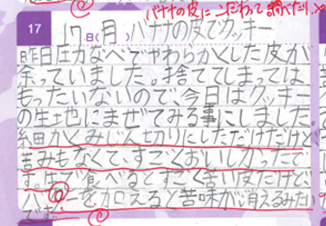 バナナの皮にこだわって調べたり、
17 17日(月)バナナの皮でクッキー
昨日圧力なべでやわらかくした皮が
余っていました。捨ててしまっては
もったいないので、今日はクッキー
の生地にまぜてみる事にしました。
細かくみじん切りにしただけだけど
苦みもなくて、すごくおいしかったで
す。生で食べるとすごくまずい皮だけど、
バターを加えると苦味が消えるみたい
です。